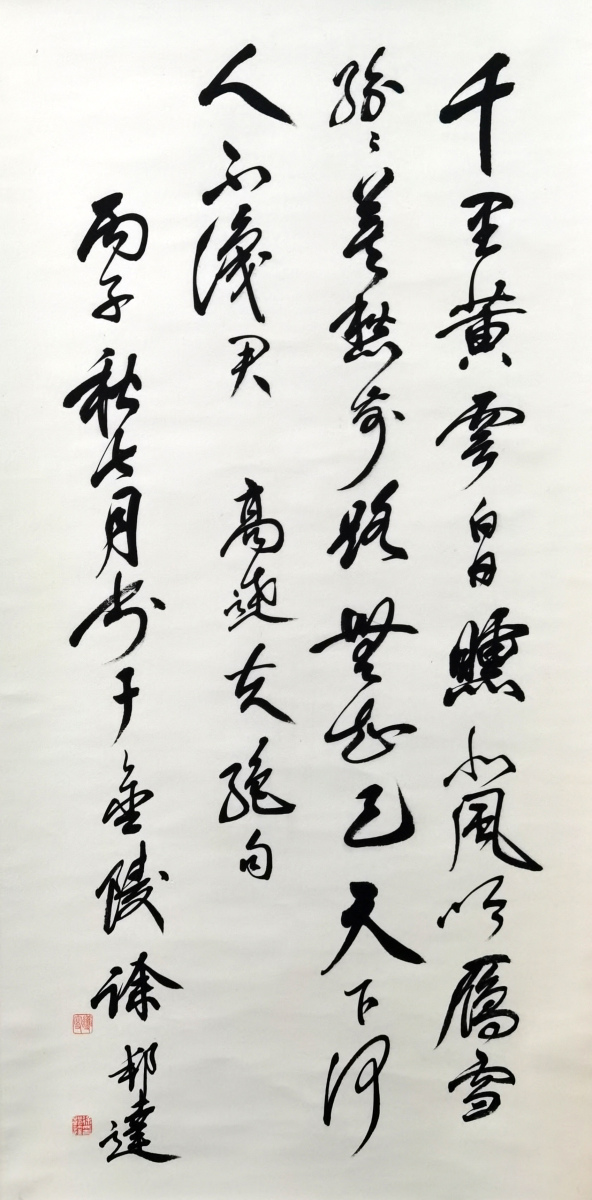 千里黄雲白日曛北風吹鴈雪
紛々莫愁前路無知己天下何
人不識君 高適絕句
丙子秋七月书于金陵徐邦達